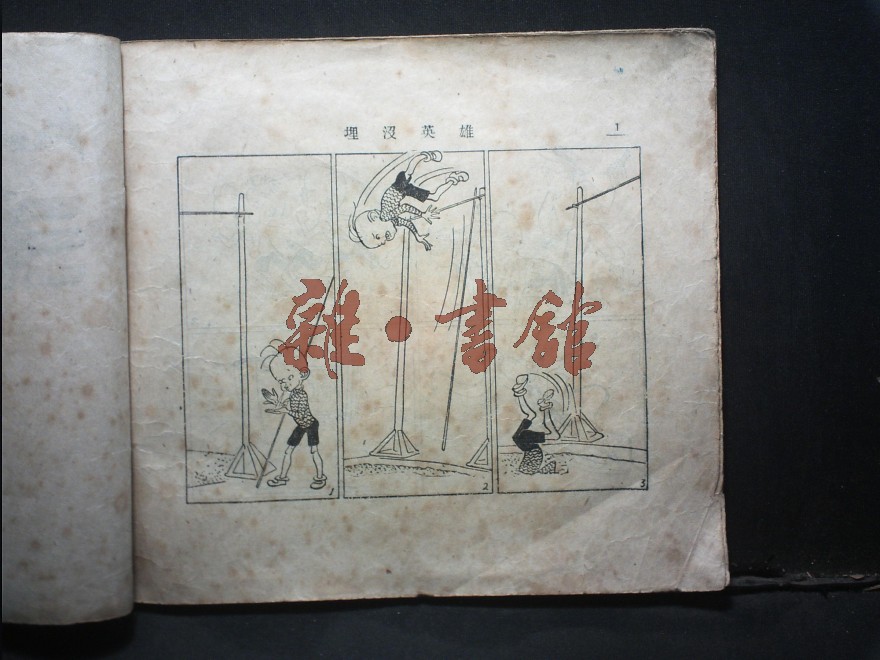 埋沒英雄
1
雜·書館
1
2
3